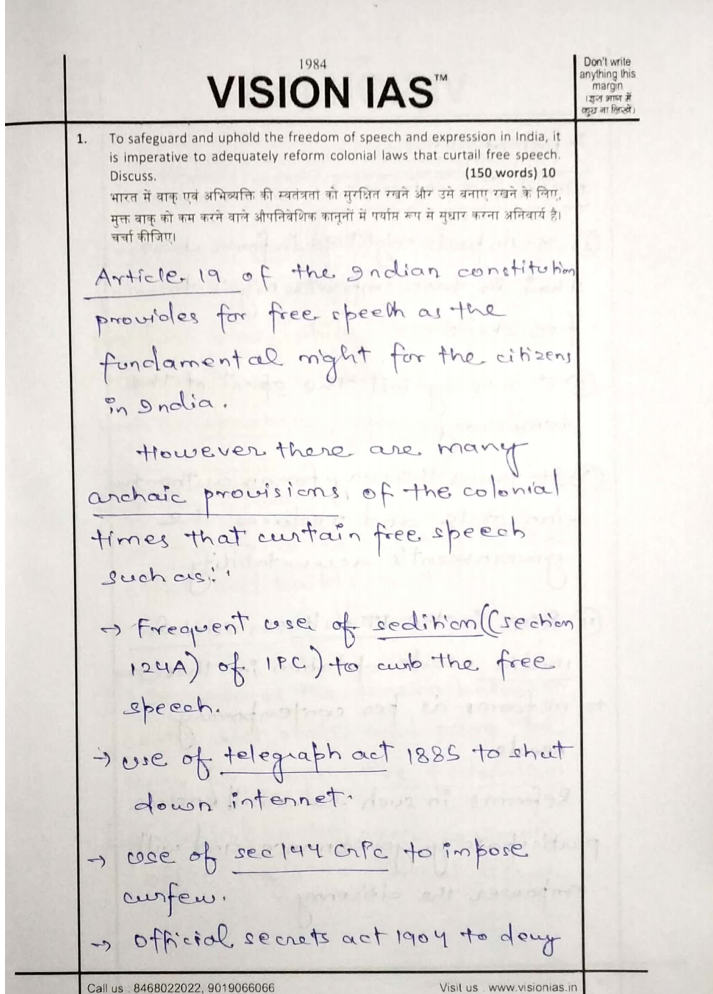 1984
VISION IAS™
Don't write
anything this
margin
(इस भाग में
कुछ ना लिखें)
1. To safeguard and uphold the freedom of speech and expression in India, it
is imperative to adequately reform colonial laws that curtail free speech.
Discuss. (150 words) 10
भारत में वाक् एवं अभिव्यक्ति की स्वतंत्रता को सुरक्षित रखने और उसे बनाए रखने के लिए,
मुक्त वाक् को कम करने वाले औपनिवेशिक कानूनों में पर्याप्त रूप से सुधार करना अनिवार्य है।
चर्चा कीजिए।
Article 19 of the Indian constitution
provides for free speech as the
fundamental right for the citizens
in India.
However there are many
archaic provisions of the colonial
times that curtain free speech
such as:
→ Frequent use of sedition((section
124A) of IPC) to curb the free
speech.
→ use of telegraph act 1885 to shut
down internet.
→ use of sec 144 CrPc to impose
curfew.
→ Official secrets act 1904 to deny
Call us : 8468022022, 9019066066
Visit us : www.visionias.in